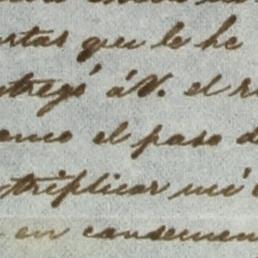 rtas que le he
ntregó á V. el r
omo el paso d
triplicar mi
en consecuen